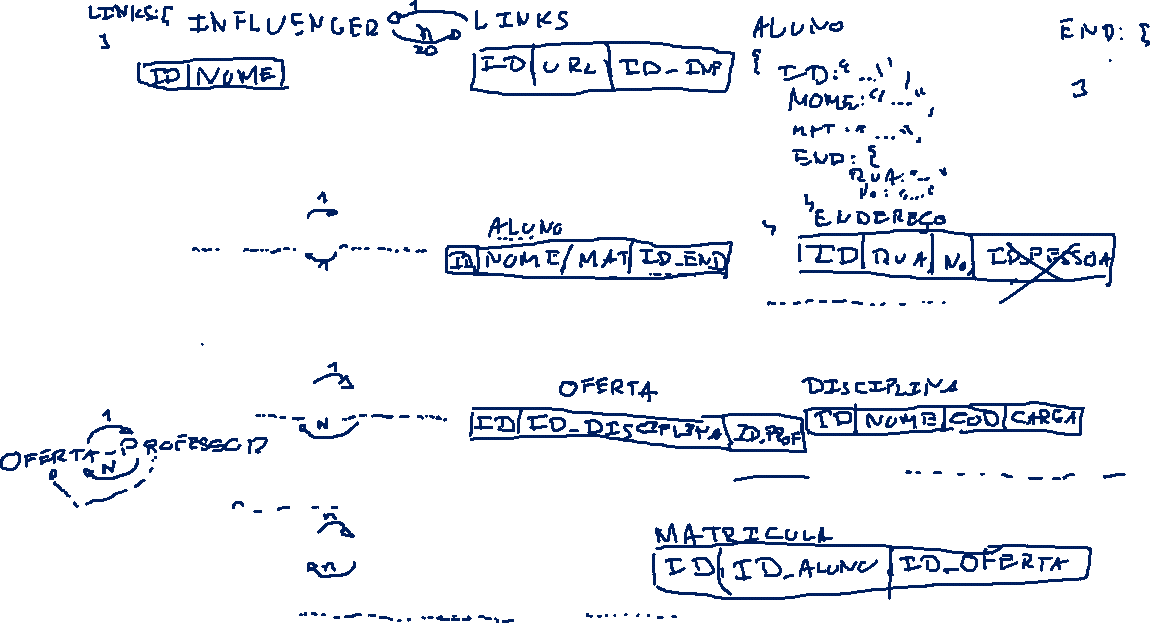 LINKS:{
}
INFLUENGER
1
n
20
LINKS
ID NOME
ID URL ID_INF
ALUNO
{
ID:"...",
NOME:"...",
MAT:"...",
END:{
RUA:"..."
No:"..."
}
}
END: {
}
1
1
ALUNO
ID NOME/MAT ID_END
ENDEREÇO
ID RUA No. ID_PESSOA
1
N
OFERTA
ID ID_DISCIPLINA ID_PROF
DISCIPLINA
ID NOME COD CARGA
1
OFERTA - PROFESSOR
N
n
n
MATRICULA
ID ID_ALUNO ID_OFERTA